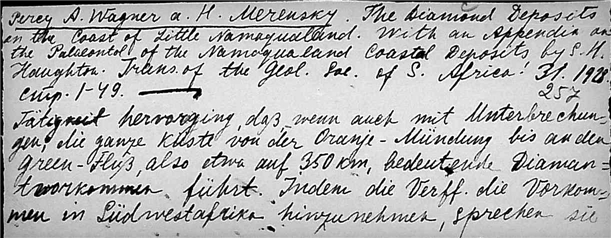 Percy A. Wagner a. H. Merensky. The Diamond Deposits
on the Coast of Little Namaqualand. With an Appendix on
the Palaeontol. of the Namaqualand Coastal Deposits by S. H.
Haughton. Trans. of the Geol. Soc. of S. Africa. 31. 1928.
стр. 1-49. 257
Tätigkeit hervorging, daß, wenn auch mit Unterbrechun-
gen, die ganze Küste von der Oranje-Mündung bis an den
Green-Fluß, also etwa auf 350 km, bedeutende Diaman=
tvorkommen führt. Indem die Verff. die Vorkom-
men in Südwestafrika hinzunehmen, sprechen sie